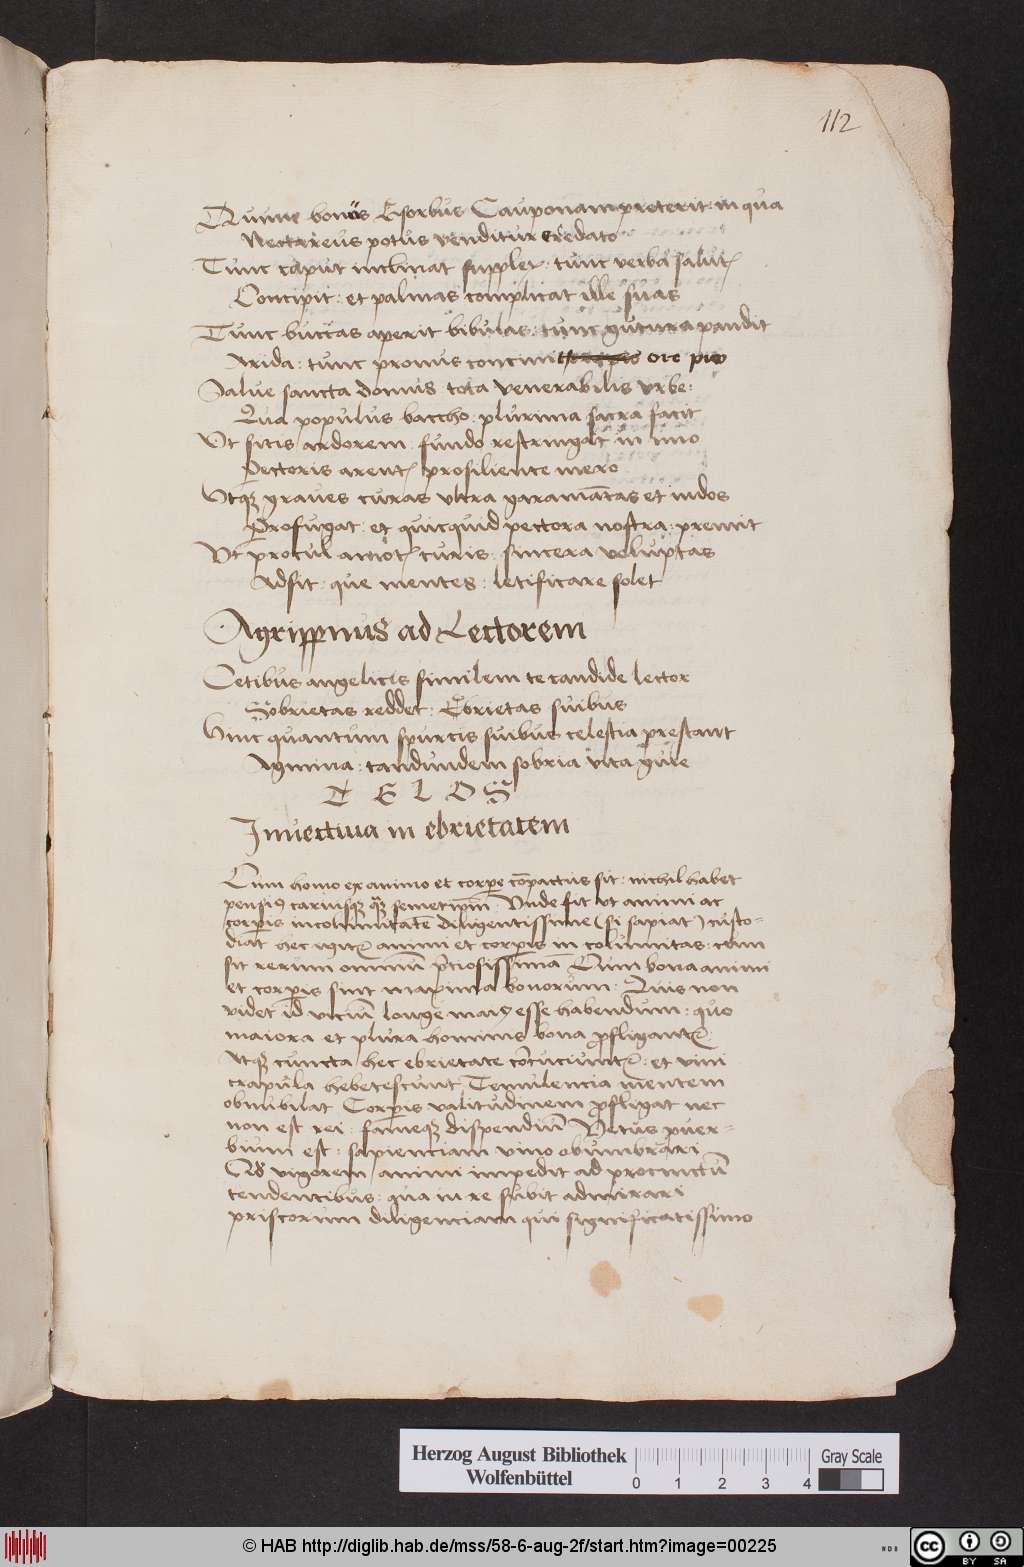 112
Dume bonus Esorbus Cauponam preterit: in qua
Nectareus potus venditur credato
Tunc caput inclinat supplex: tunc verba salut
Concipit: et palmas complicat ille suas
Tunc buccas aperit bibulas: tunc gutura pandit
Arida: tunc pronus concinit ore pio
Salue sancta domus tota venerabilis vrbe:
Qua populus baccho: plurima sacra facit
Vt sitis ardorem fundo restringat in imo
Pectoris arent prosiliente mero
Vtqz graues curas vltra garamātas et indos
Profugat: et quicquid pectora nostra: premit
Vt procul amot curis: sincera voluptas
Adsit: que mentes: letificare solet
Agrippinus ad Lectorem
Cetibus angelicis similem te candide lector
Sobrietas reddet: Ebrietas suibus
Hinc quantum spurcis suibus celestia prestant
Agmina: tandundem sobria vita gule
T E L O S
Inuectiua in ebrietatem
Cum homo ex animo et corpe cōpactus sit: nichil habet
pensi9 cariusqz qz semetipm̄: Vnde fit vt animi ac
corpis incolumitatē diligentissime (si sapiat) custo-
diat hec igit animi et corpis in columitas: cum
sit rerum omniū pciosissima Cum bona animi
et corpis sint maxima bonorum: Quis non
videt id viciū longe mai9 esse habendum: quo
maiora et plura hominis bona pfligant
vtqz cuncta hec ebrietate coruciunt: et vini
crapula hebetescunt Temulencia mentem
obnubilat Corpis valitudinem pfligat nec
non est rei: fameqz dispendiū Vetus puer-
bium est: sapienciam vino obumbrari
vigorem animi impedit ad procinctū
tendentibus: qua in re subit admirari
priscorum diligenciam qui significatissimo
Herzog August Bibliothek
Wolfenbüttel
0 1 2 3 4
Gray Scale
© HAB http://diglib.hab.de/mss/58-6-aug-2f/start.htm?image=00225
cc BY SA